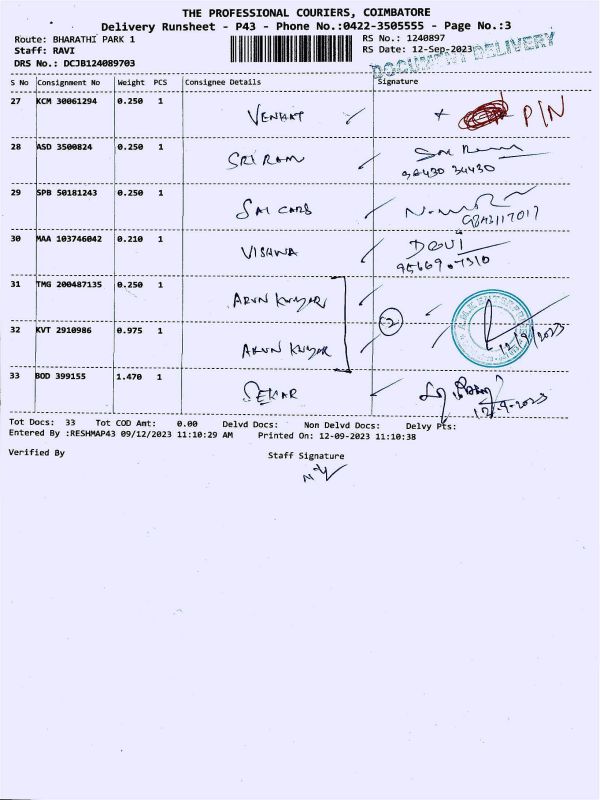 THE PROFESSIONAL COURIERS, COIMBATORE
Delivery Runsheet - P43 - Phone No.:0422-3505555 - Page No.:3
Route: BHARATHI PARK 1 RS No.: 1240897
Staff: RAVI RS Date: 12-Sep-2023
DRS No.: DCJB124089703
DOCUMENT DELIVERY
S No Consignment No Weight PCS Consignee Details Signature
27 KCM 30061294 0.250 1 VENKAT PIN
28 ASD 3500824 0.250 1 SRI RAM
98430 34430
29 SPB 50181243 0.250 1 SAI CARS
9843117017
30 MAA 103746042 0.210 1 VISHWA DEVI
31 TMG 200487135 0.250 1 ARUN KUMAR
2
32 KVT 2910986 0.975 1 ARUN KUMAR 12/9/2023
33 BOD 399155 1.470 1 SEKAR
12-9-2023
Tot Docs: 33 Tot COD Amt: 0.00 Delvd Docs: Non Delvd Docs: Delvy Pts:
Entered By :RESHMAP43 09/12/2023 11:10:29 AM Printed On: 12-09-2023 11:10:38
Verified By Staff Signature